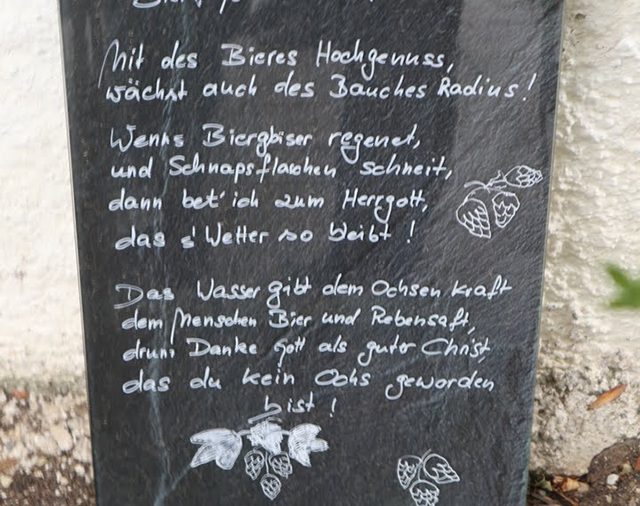 Mit des Bieres Hochgenuss,
wächst auch des Bauches Radius!
Wenns Biergläser regenet,
und Schnapsflaschen schneit,
dann bet' ich zum Herrgott,
das s' Wetter so bleibt!
Das Wasser gibt dem Ochsen kraft
dem Menschen Bier und Rebensaft,
drum Danke Gott als guter Christ
das du kein Ochs geworden
bist!